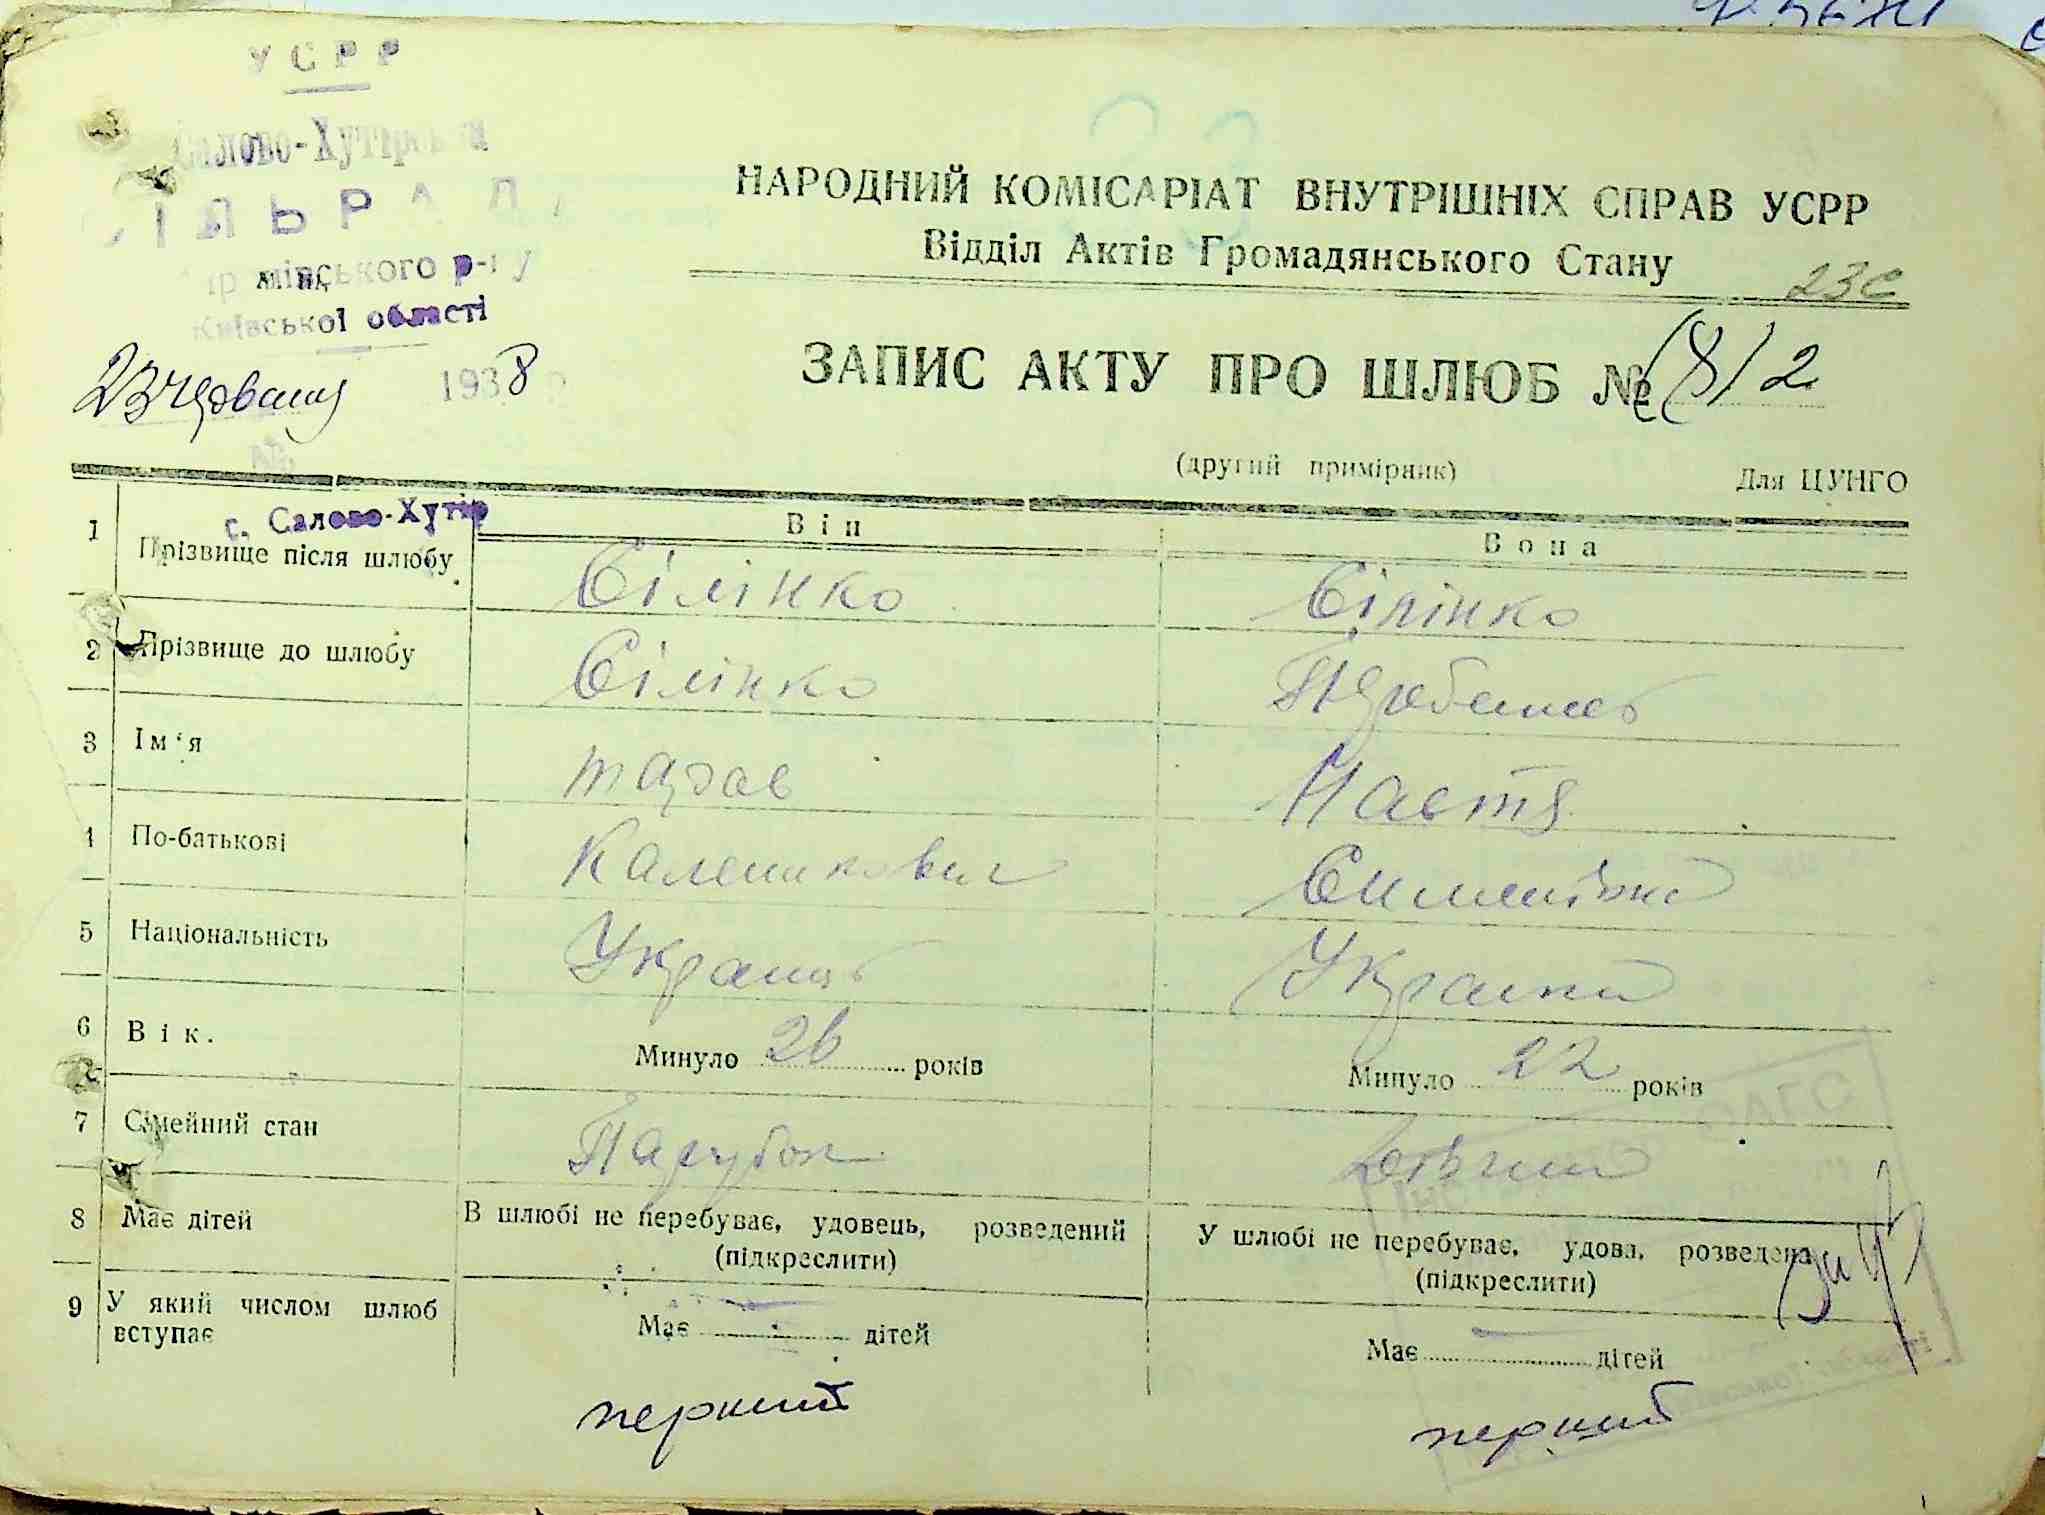 УСРР
Салово-Хутірська
СІЛЬРАДА
р-ну
Київської області
1938
НАРОДНИЙ КОМІСАРІАТ ВНУТРІШНІХ СПРАВ УСРР
Відділ Актів Громадянського Стану
23
ЗАПИС АКТУ ПРО ШЛЮБ № (8) 2
(другий примірник) Для ЦУНГО
с. Салово-Хутір
Він Вона
1 Прізвище після шлюбу Сілінко Сілінко
2 Прізвище до шлюбу Сілінко
3 Ім'я тарас Настя
4 По-батькові Каленикович
5 Національність Украинц Украинка
6 Вік. Минуло 26 років Минуло 22 років
7 Сімейний стан Парубок
8 Має дітей В шлюбі не перебуває, удовець, розведений У шлюбі не перебуває, удова, розведена
(підкреслити) (підкреслити)
9 У який числом шлюб
вступає Має дітей Має дітей
перший перший